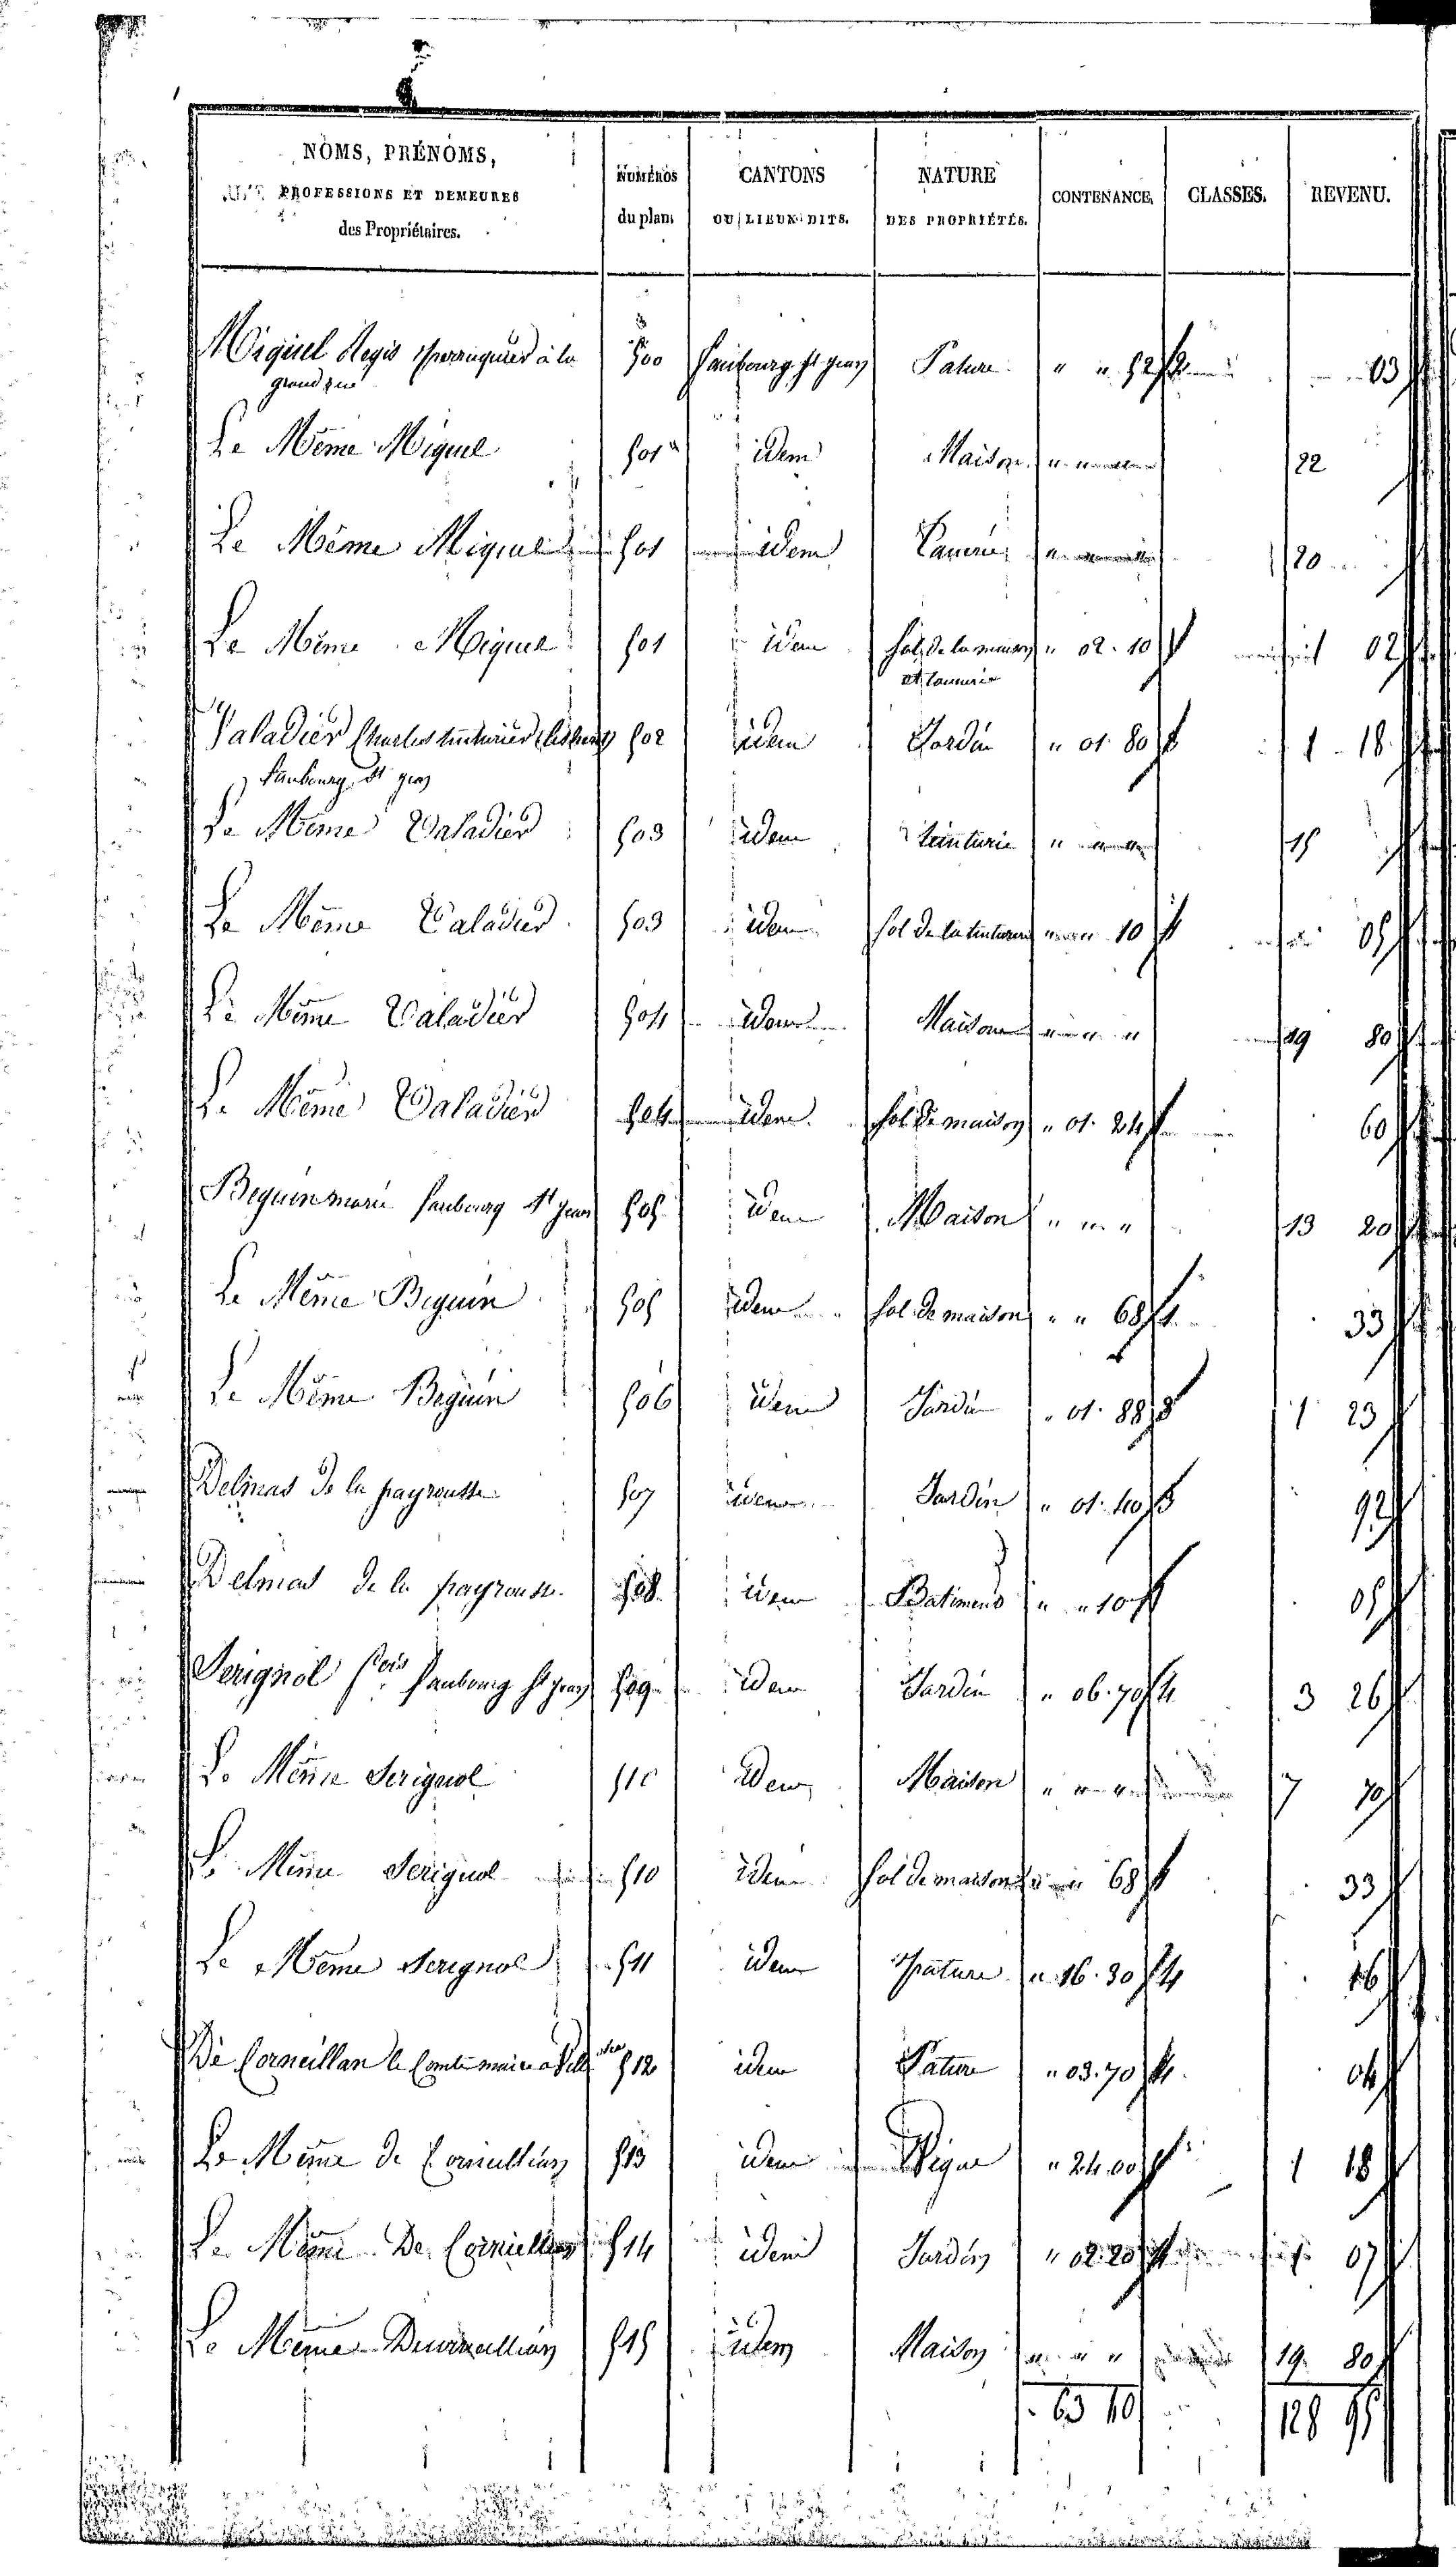 NOMS, PRÉNOMS, PROFESSIONS ET DEMEURES des Propriétaires. NUMÉROS du plan. CANTONS OU LIEUX-DITS. NATURE DES PROPRIÉTÉS. CONTENANCE. CLASSES. REVENU.
Miquel Regis perruquier à la 500 faubourg St jean Pature " " 52 03
grand rue
Le Même Miquel 501 idem Maison " 22
Le Même Miquel 501 idem Tanerie " 20
Le Même Miquel 501 idem sol de la maison " 02. 10 1 02
et tannerie
Valadier Charles teinturier 502 idem Jardin " 01. 80 1 18
faubourg St jean
Le Même Valadier 503 idem teinturie " 15
Le Même Valadier 503 idem sol de la teinturie " " 10 05
Le Même Valadier 504 idem Maison " " " 19 80
Le Même Valadier 504 idem sol de maison " 01. 24 60
Beguin marie faubourg St jean 505 idem Maison " " " 13 20
Le Même Beguin 505 idem sol de maison " " 68 1 33
Le Même Beguin 506 idem Jardin " 01. 88 3 1 23
Delmas de la payrousse 507 idem Jardin " 01. 40 3 92
Delmas de la payrousse 508 idem Batiment " " 10 05
Serignol fçois faubourg St jean 509 idem Jardin " 06. 70 4 3 26
Le Même Serignol 510 idem Maison " " " 7 70
Le Même Serignol 510 idem sol de maison " " 68 33
Le Même Serignol 511 idem pature " 16. 30 4 16
De Corneillan le Comte maire a Ville 512 idem Pature " 03. 70 4 04
Le Même de Corneillan 513 idem Vigne " 24. 00 1 18
Le Même De Corneillan 514 idem Jardin " 02. 20 07
Le Même Decorneillan 515 idem Maison " " " 19 80
63 40 128 95